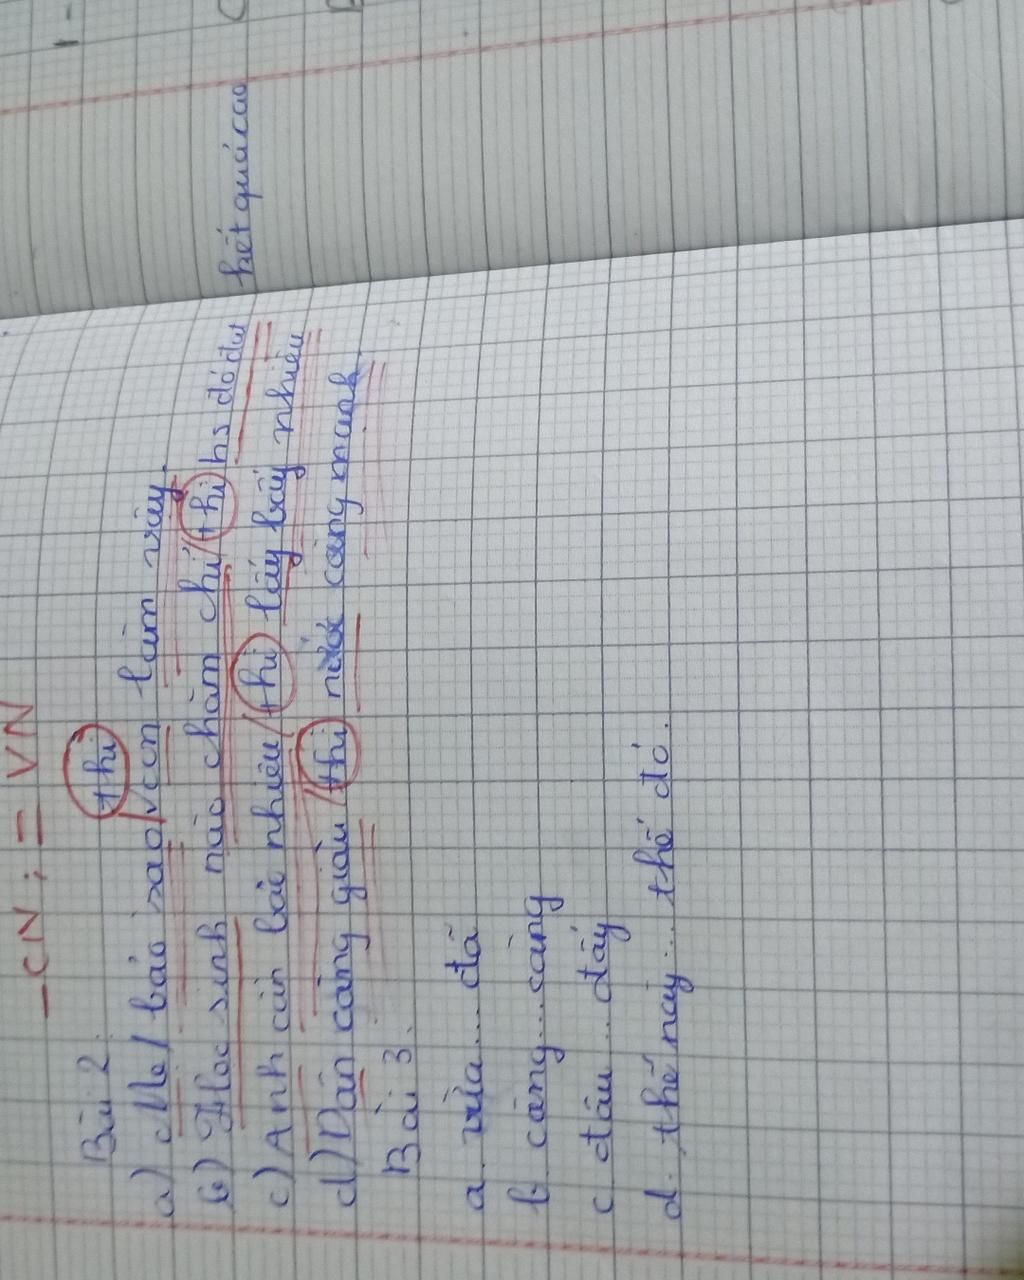 - CN ; = VN
Bài 2. thì
a) Mẹ / bảo sao / con làm vậy.
b) Học sinh nào chăm chỉ / thì hs đó đạt kết quả cao
c) Anh cần bao nhiêu / thì lấy bấy nhiêu
d) Dân càng giàu / thì nước càng mạnh.
Bài 3.
a. vừa... đã
b. càng... càng
c. đâu... đấy
d. thế này... thế đó.